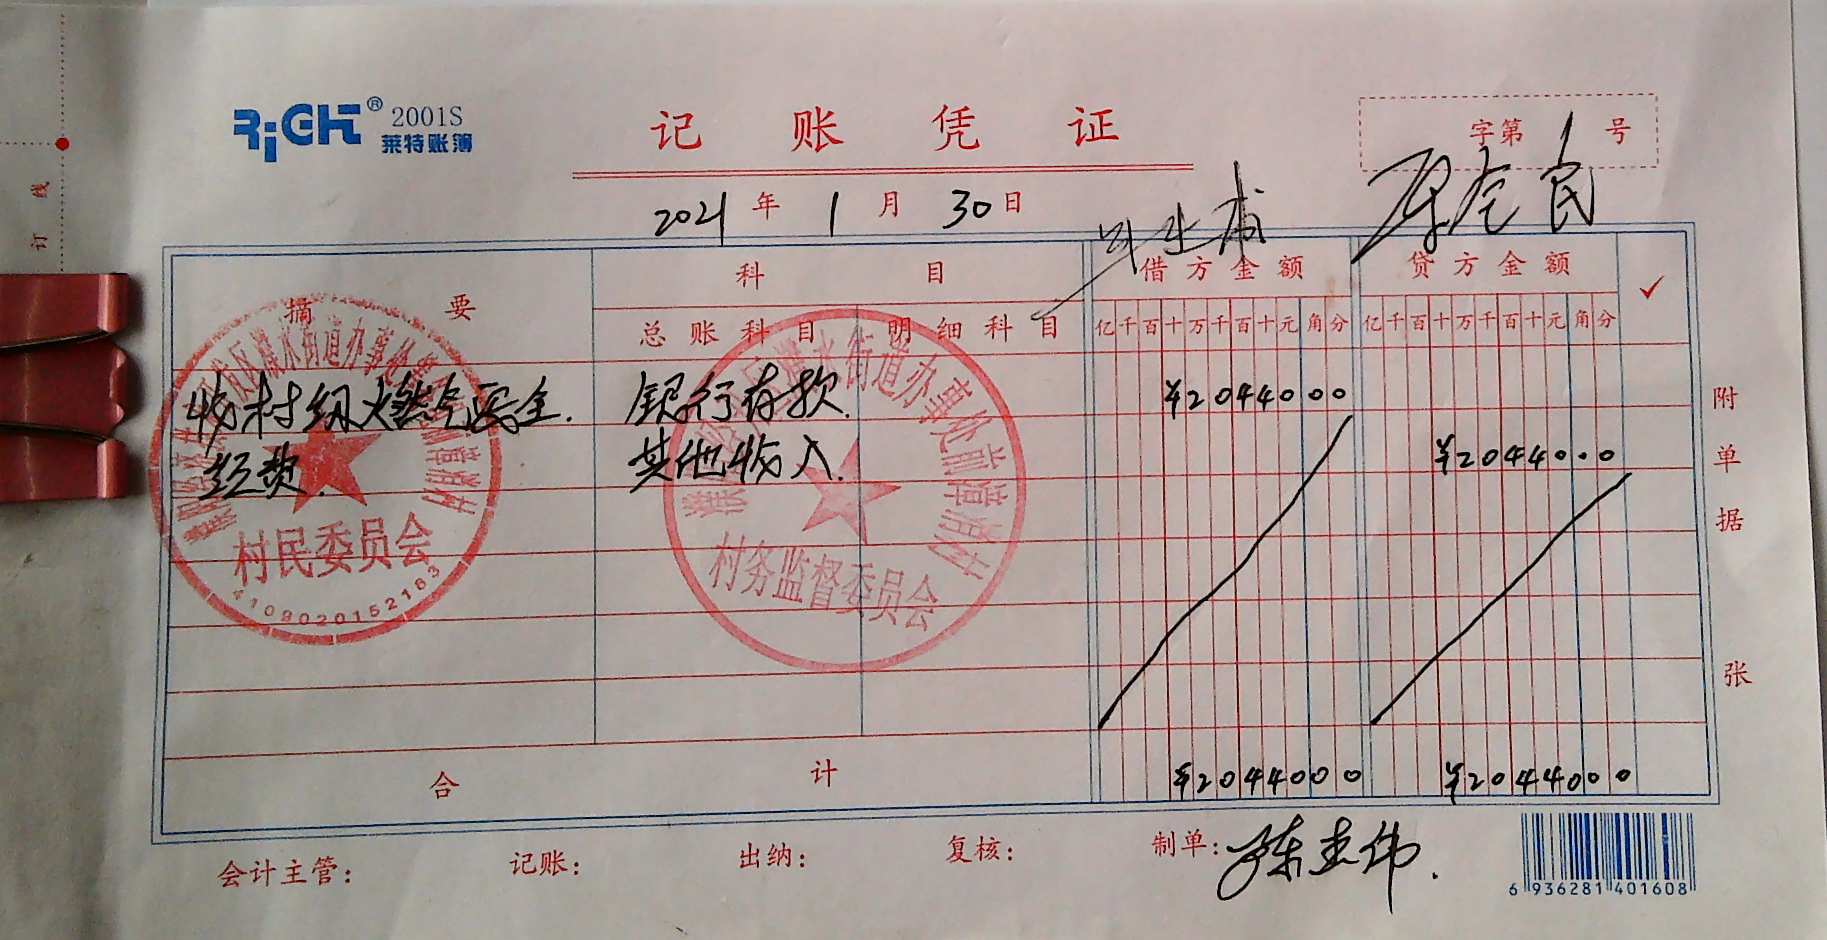 RiCH® 2001S
莱特账簿
记账凭证
字第 1 号
2021 年 1 月 30 日
摘要
科目
借方金额
贷方金额
✓
总账科目
明细科目
亿千百十万千百十元角分
亿千百十万千百十元角分
收村级燃气安全
经费.
银行存款.
¥2044000
其他收入.
¥2044000
村民委员会
4109020152183
村务监督委员会
附单据 张
合计
¥2044000
¥2044000
会计主管:
记账:
出纳:
复核:
制单:
6 936281 401608
订线